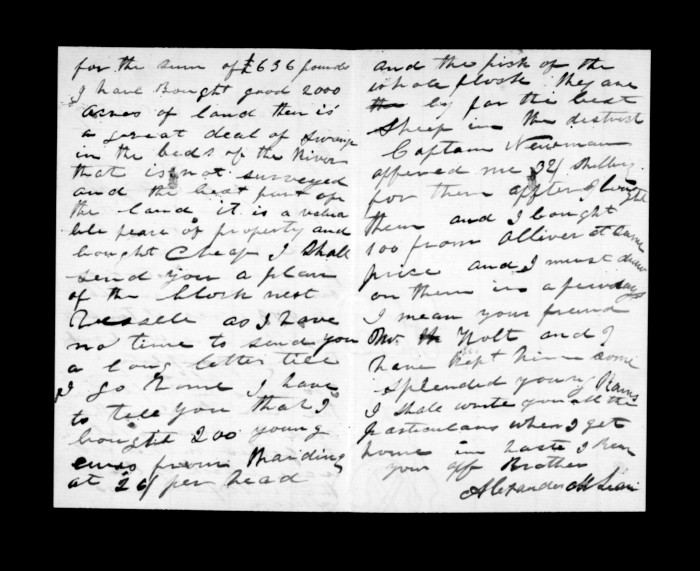 for the sum of £636 pounds
I have Bought good 2000
acres of land their is
a great deal of swamp
in the beds of the River
that is not surveyed
and the best part of
the land it is a valua
ble peace of property and
bought Cheap I shall
send you a plan
of the block nest
as I have
no time to send you
a long letter till
I go home I have
to tell you that I
bought 200 young
ewes from
at 26/ per head
and the pick of the
whole flock they are
the by far the best
sheep in the district
Captain Newman
offered me 32/ shelling
for them affter I bought
them and I bought
100 from Alliver at same
price and I must draw
on them in a few days
I mean your freind
Mr. Holt and I
have kept him some
splended young Rams
I shale write you all the
particulars when I get
home in haste I
your aff Brother
Alexander McLean